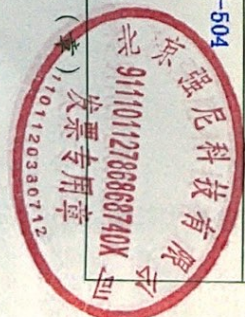 -504
北京强尼科技有限公司
91110112786868740X
发票专用章
1101120380712
（章）